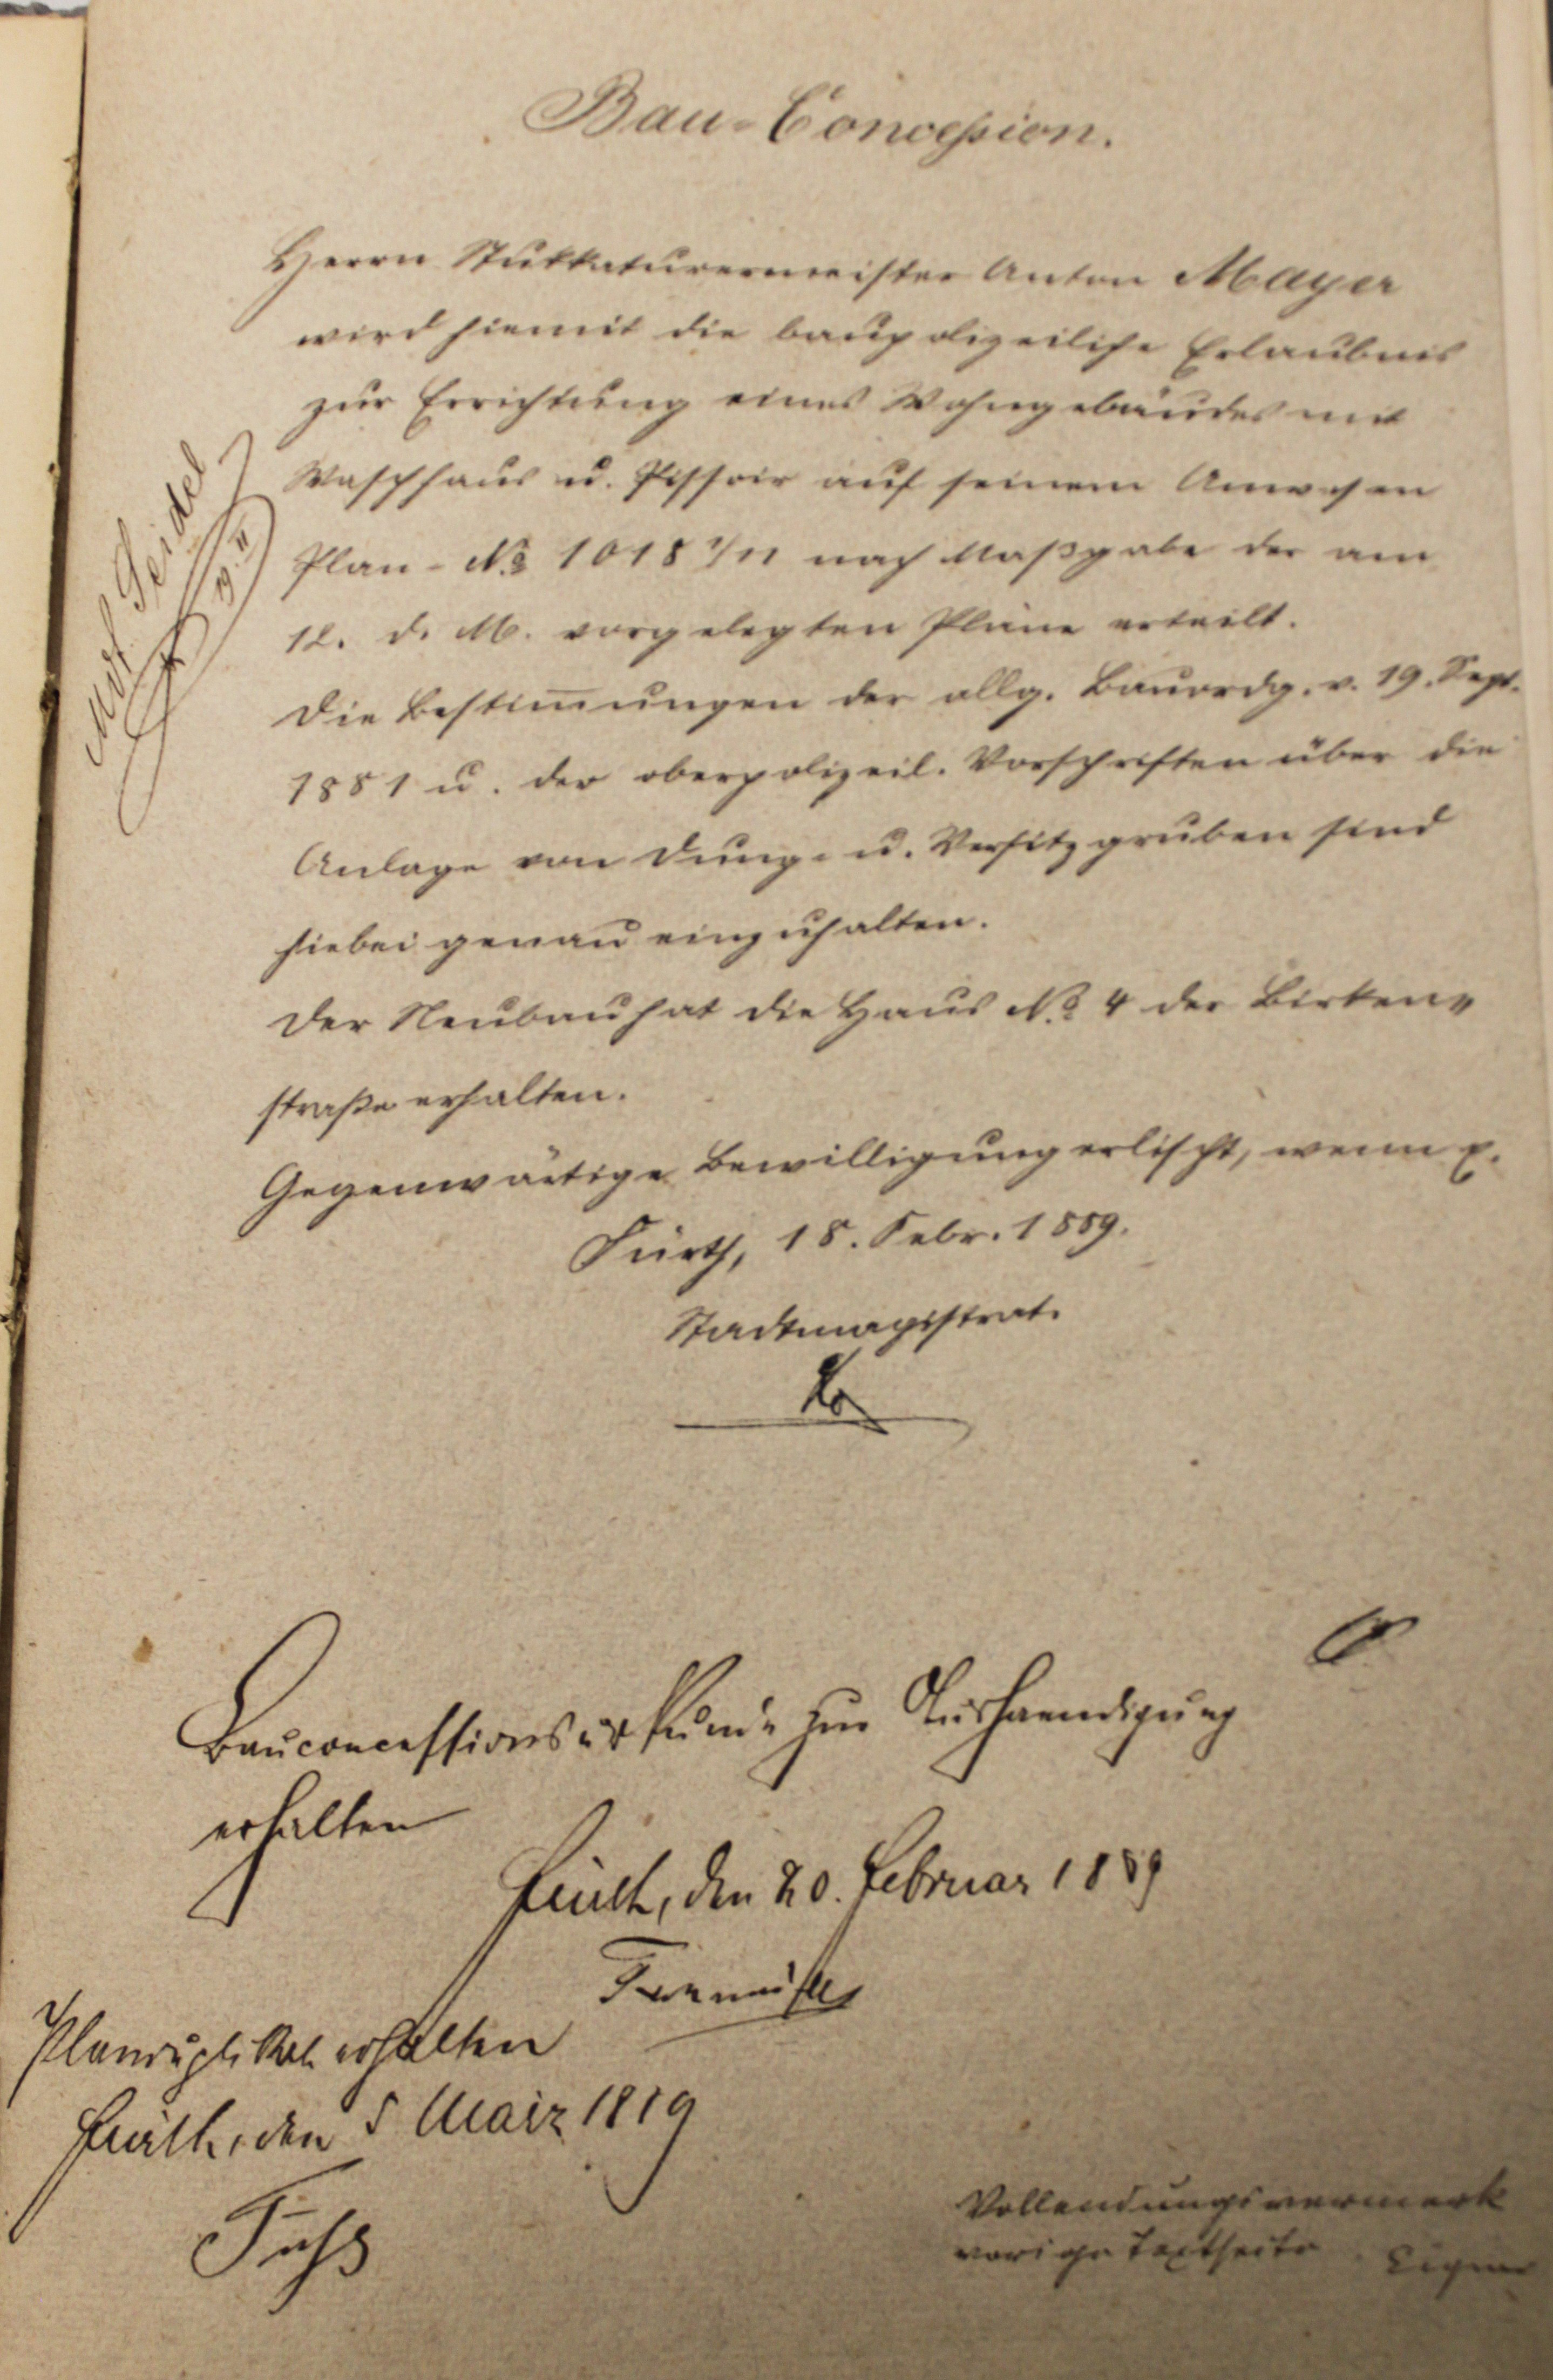 Bau-Concession.
Herrn Stukkaturermeister Anton Mayer
wird hiemit die baupolizeiliche Erlaubnis
zur Errichtung eines Wohngebäudes mit
Waschhaus u. Pissoir auf seinem Anwesen
Plan-No 1018 1/11 nach Maßgabe der am
12. d. M. vorgelegten Pläne erteilt.
Die Bestimmungen der allg. Bauordg. v. 19. Sept.
1881 u. der oberpolizeil. Vorschriften über die
Anlage von Dung- u. Versitzgruben sind
hiebei genau einzuhalten.
Der Neubau hat die Haus No 4 der Birken-
straße erhalten.
Gegenwärtige Bewilligung erlischt, wenn
Fürth, 18. Febr. 1889.
Stadtmagistrat.
Seidel
19. II
Bauconcessionsurkunde zur Aushaendigung
erhalten
Fürth, den 20. Februar 1889
Planduplikat erhalten
Fürth, den 5 März 1889
Vollendungsvermerk
vorige Textseite